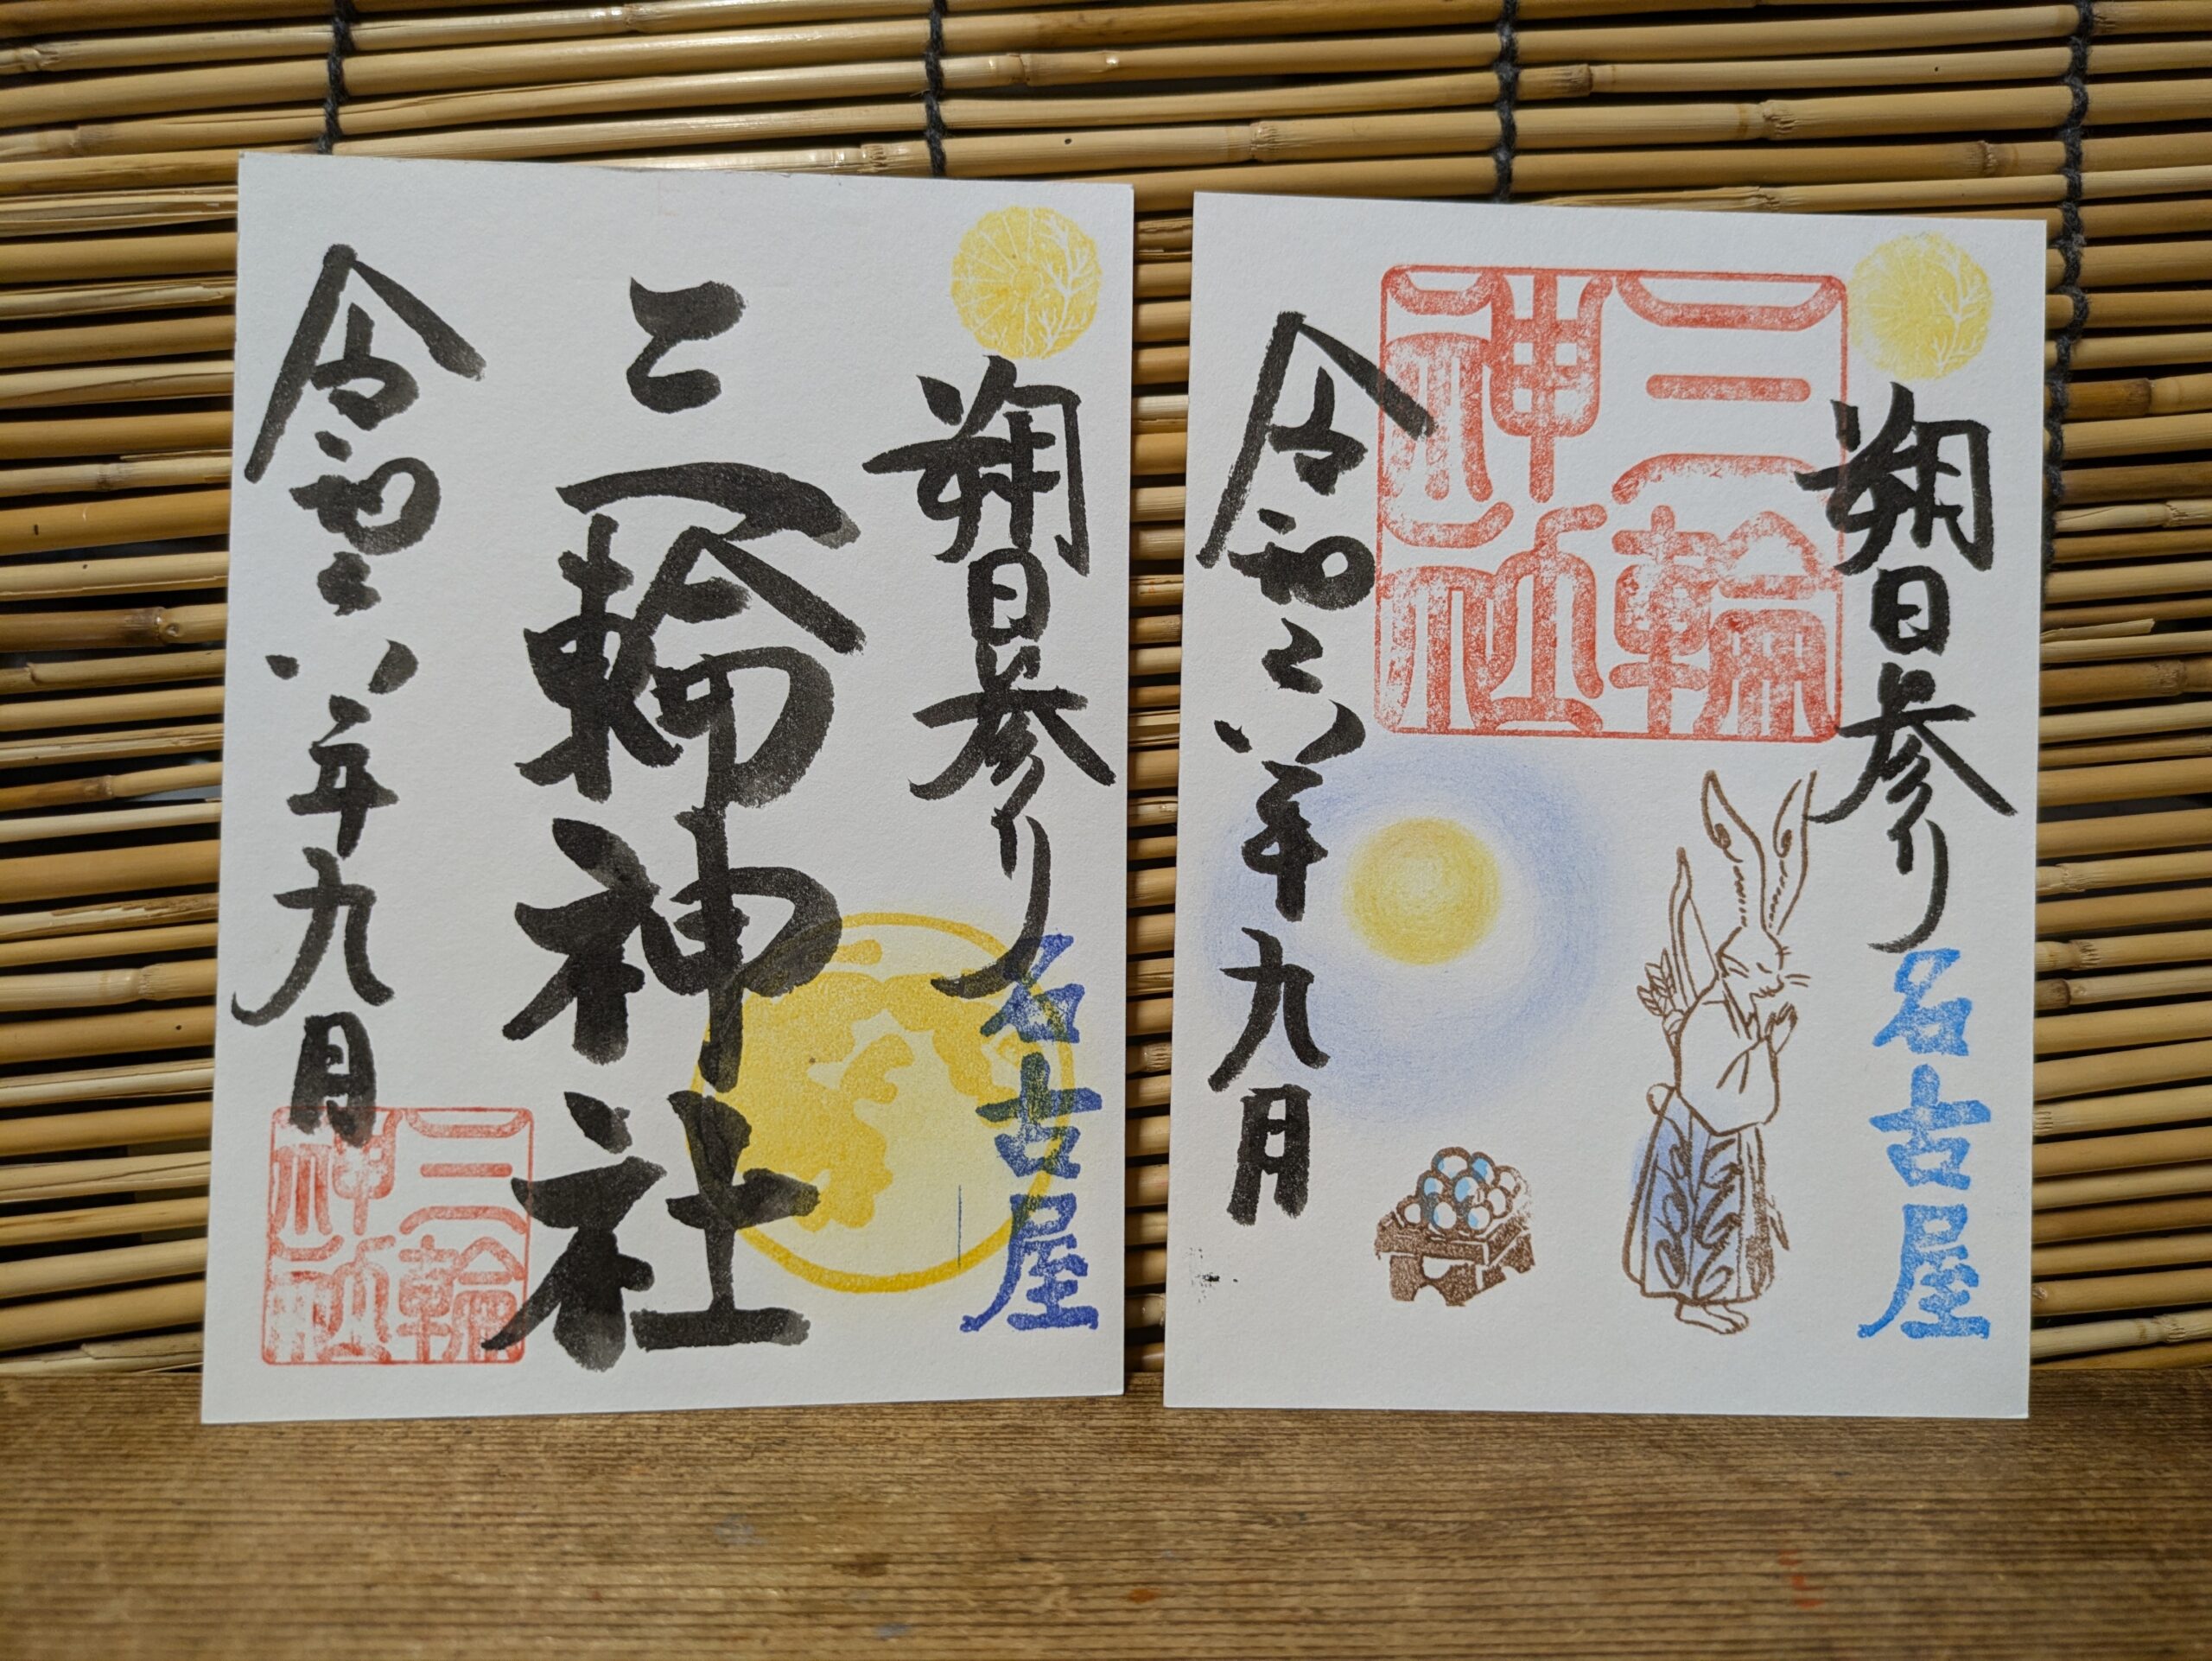 朔日参り
名古屋
三輪神社
令和六年九月
三輪
神社
朔日参り
名古屋
三輪
神社
令和六年九月